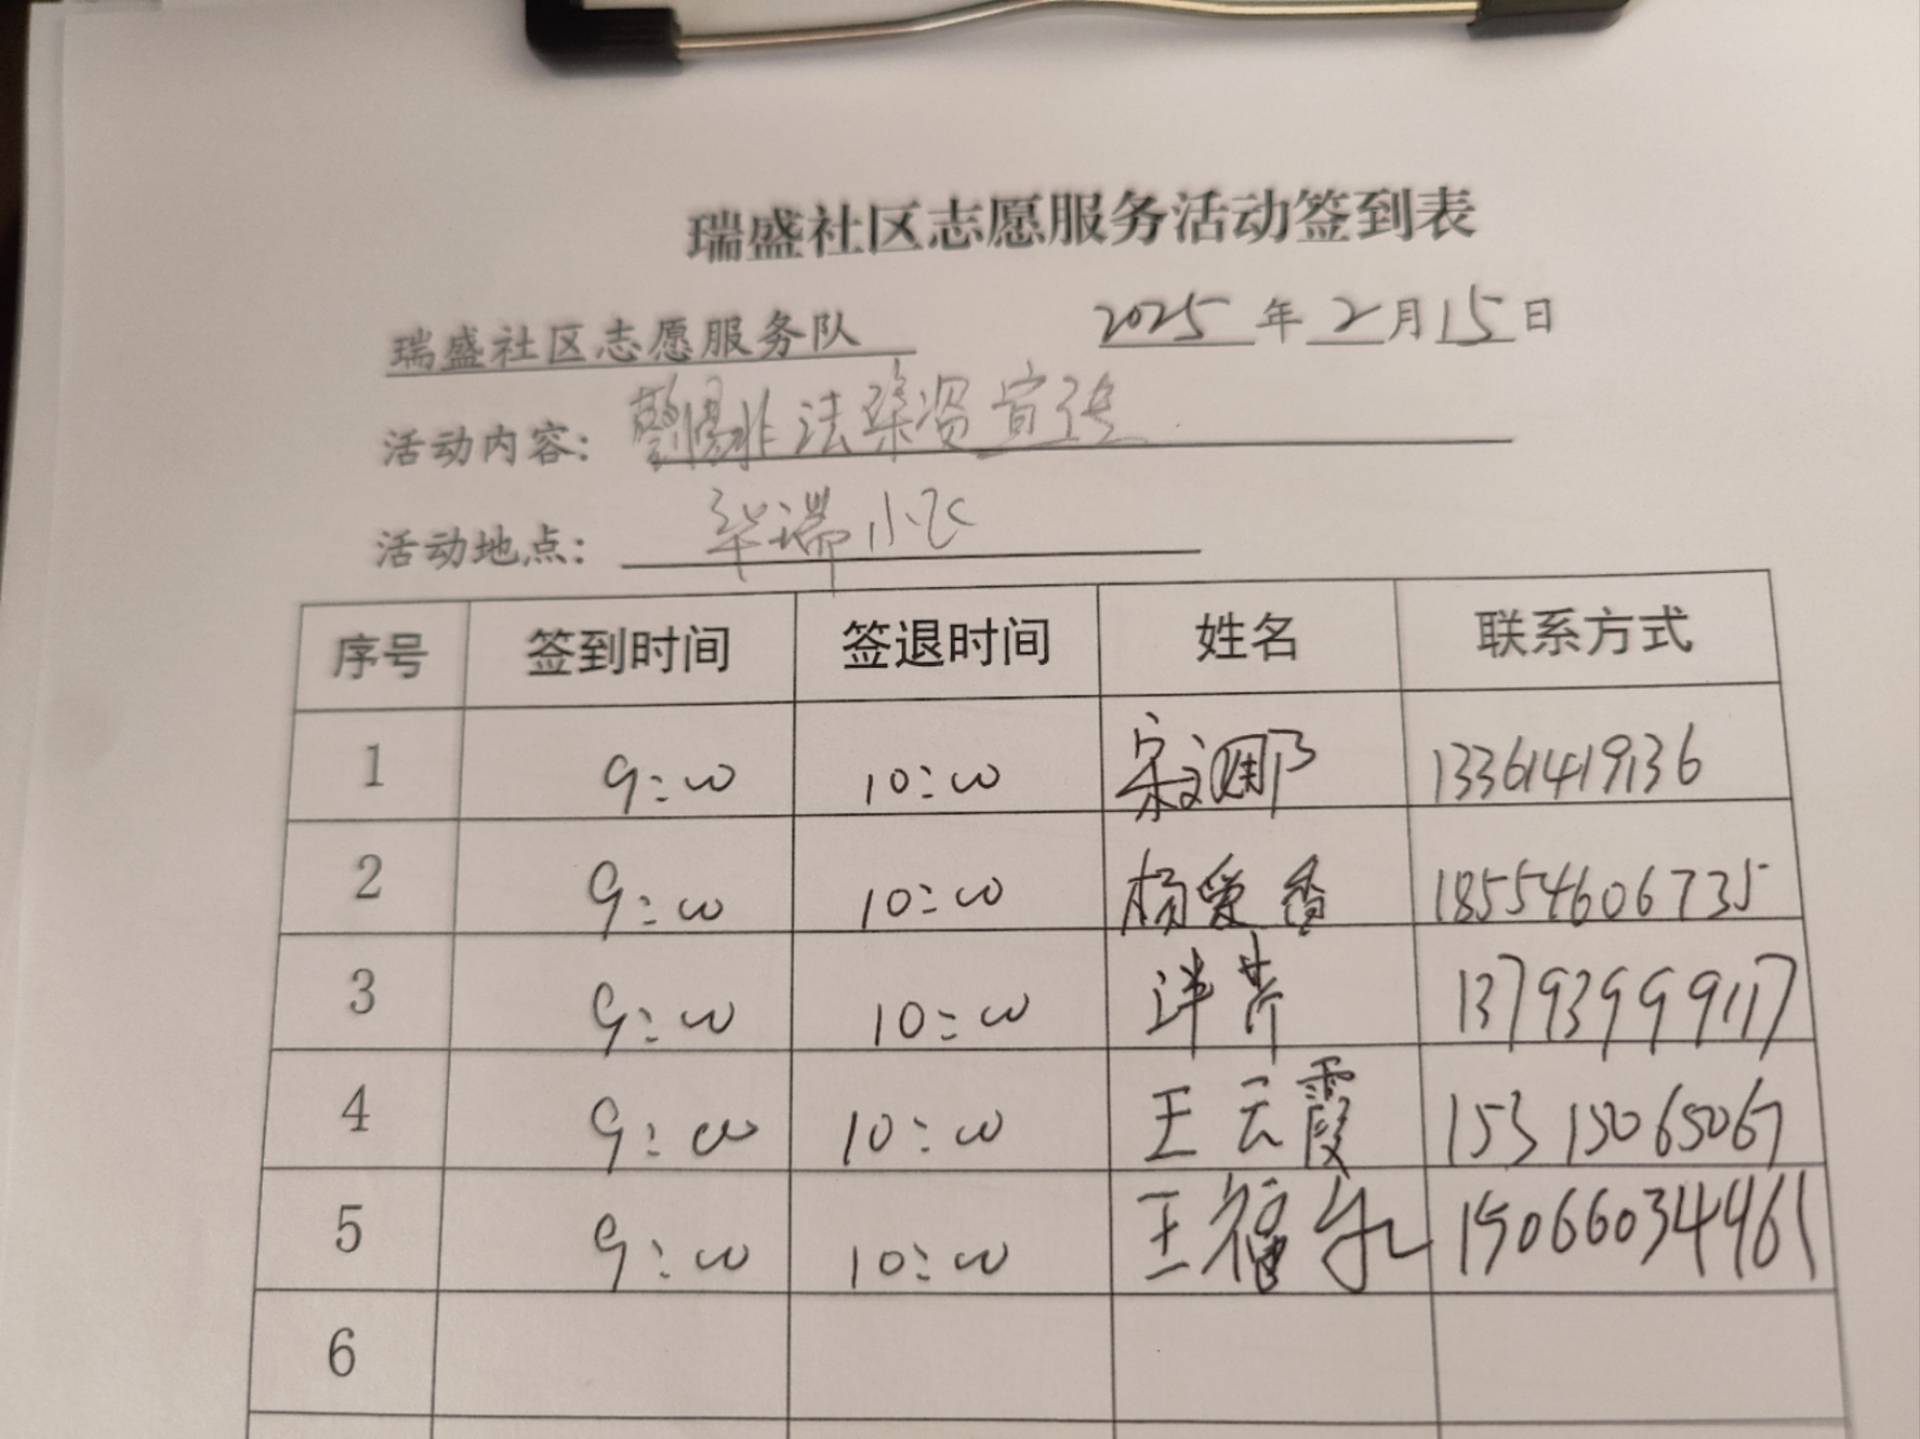 瑞盛社区志愿服务活动签到表
瑞盛社区志愿服务队 2025年2月15日
活动内容： 非法集资宣传
活动地点： 华瑞小区
序号 签到时间 签退时间 姓名 联系方式
1 9:00 10:00 宋 娜 13361419136
2 9:00 10:00 杨爱香 18554606735
3 9:00 10:00 13793999117
4 9:00 10:00 王云霞 15315065067
5 9:00 10:00 王福 15066034461
6